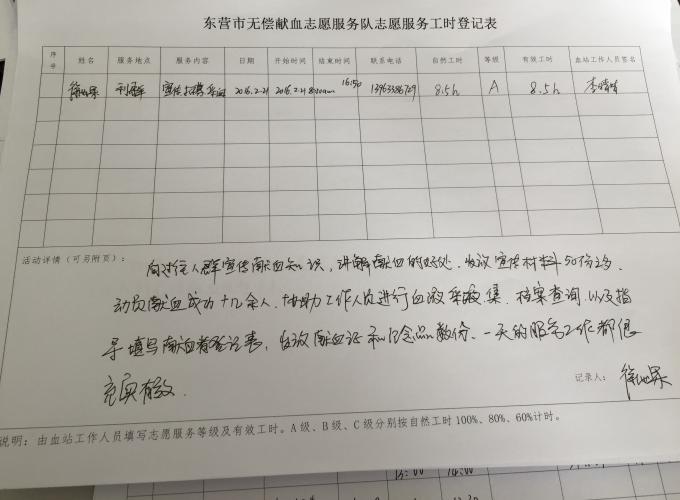 东营市无偿献血志愿服务队志愿服务工时登记表
序号 姓名 服务地点 服务内容 日期 开始时间 结束时间 联系电话 自然工时 等级 有效工时 血站工作人员签名
2016.2.21 2016.2.21 8:00am 16:50 8.5h A 8.5h 李晴晴
活动详情（可另附页）：
向过往人群宣传献血知识，讲解献血的好处，发放宣传材料50份多，
动员献血成功十几余人，协助工作人员进行血液采集、档案查询，以及指
导填写献血者登记表，发放献血证和纪念品数份，一天的服务工作都很
充实有效．
记录人：
说明：由血站工作人员填写志愿服务等级及有效工时。A级、B级、C级分别按自然工时100%、80%、60%计时。